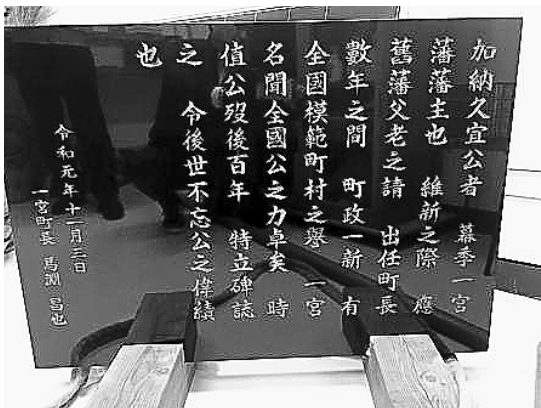 加納久宜公者　幕季一宮
藩藩主也　維新之際　應
舊藩父老之請　出任町長
數年之間　町政一新　有
全國模範町村之譽　一宮
名聞全國公之力卓矣　時
值公歿後百年　特立碑誌
之　令後世不忘公之偉績
也
令和元年十一月三日
一宮町長　馬淵　昌也